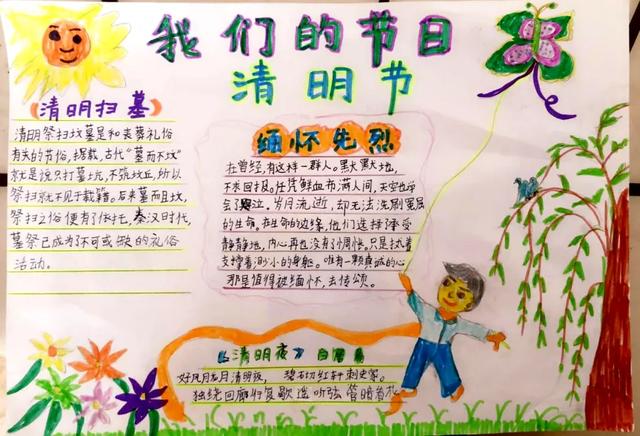 我们的节日
清明节
《清明扫墓》
清明祭扫坟墓是和丧葬礼俗
有关的节俗，据载，古代“墓而不坟”
就是说只打墓坑，不筑坟丘，所以
祭扫就不见于载籍。后来墓而且坟，
祭扫之俗便有了依托，秦汉时代，
墓祭已成为不可或缺的礼俗
活动。
缅怀先烈
在曾经，有这样一群人。默默地，
不求回报。任凭鲜血布满人间，天空也
哭泣。岁月流逝，却无法洗刷冤屈
的生命。在生命的边缘，他们选择承受
静静地，内心再也没有了惆怅。只是执着
支撑着渺小的身躯。唯有一颗真诚的心
那是值得被缅怀，去传颂。
《清明夜》白居易
好风月清明夜，碧砌红轩刺史家。
独绕回廊行复歇 遥听弦管暗看花